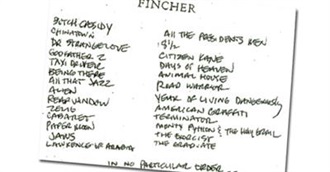 FINCHER
BUTCH CASSIDY
CHINATOWN
DR STRANGELOVE
GODFATHER 2
TAXI DRIVER
BEING THERE
ALL THAT JAZZ
ALIEN
REAR WINDOW
ZELIG
CABARET
PAPER MOON
JAWS
LAWRENCE OF ARABIA
ALL THE PRESIDENTS MEN
8 1/2
CITIZEN KANE
DAYS OF HEAVEN
ANIMAL HOUSE
ROAD WARRIOR
YEAR OF LIVING DANGEROUSLY
AMERICAN GRAFFITI
TERMINATOR
MONTY PYTHON & THE HOLY GRAIL
THE EXORCIST
THE GRADUATE
IN NO PARTICULAR ORDER